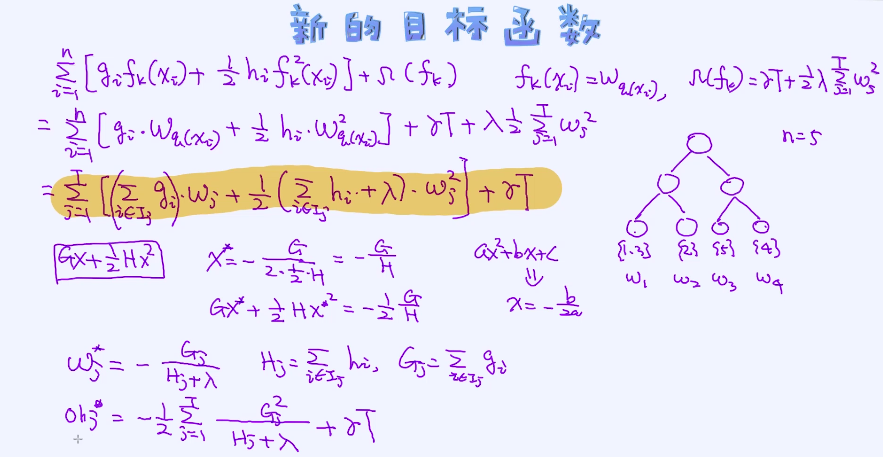 新的目标函数
$\sum_{i=1}^{n}\left[g_i f_k(x_i)+\frac{1}{2}h_i f_k^2(x_i)\right]+\Omega(f_k)$ $f_k(x_i)=w_{q(x_i)}$, $\Omega(f_k)=\gamma T+\frac{1}{2}\lambda\sum_{j=1}^{T}w_j^2$
$=\sum_{i=1}^{n}\left[g_i\cdot w_{q(x_i)}+\frac{1}{2}h_i\cdot w_{q(x_i)}^2\right]+\gamma T+\lambda\frac{1}{2}\sum_{j=1}^{T}w_j^2$ n=5
$=\sum_{j=1}^{T}\left[\left(\sum_{i\in I_j}g_i\right)\cdot w_j+\frac{1}{2}\left(\sum_{i\in I_j}h_i+\lambda\right)\cdot w_j^2\right]+\gamma T$
{1.3} {2} {5} {4}
$w_1$ $w_2$ $w_3$ $w_4$
$Gx+\frac{1}{2}Hx^2$ $x^*=-\frac{G}{2\cdot\frac{1}{2}\cdot H}=-\frac{G}{H}$ $ax^2+bx+c$
⇓
$Gx^*+\frac{1}{2}Hx^{*2}=-\frac{1}{2}\frac{G}{H}$ $x=-\frac{b}{2a}$
$w_j^*=-\frac{G_j}{H_j+\lambda}$ $H_j=\sum_{i\in I_j}h_i$, $G_j=\sum_{i\in I_j}g_i$
$Obj^*=-\frac{1}{2}\sum_{j=1}^{T}\frac{G_j^2}{H_j+\lambda}+\gamma T$